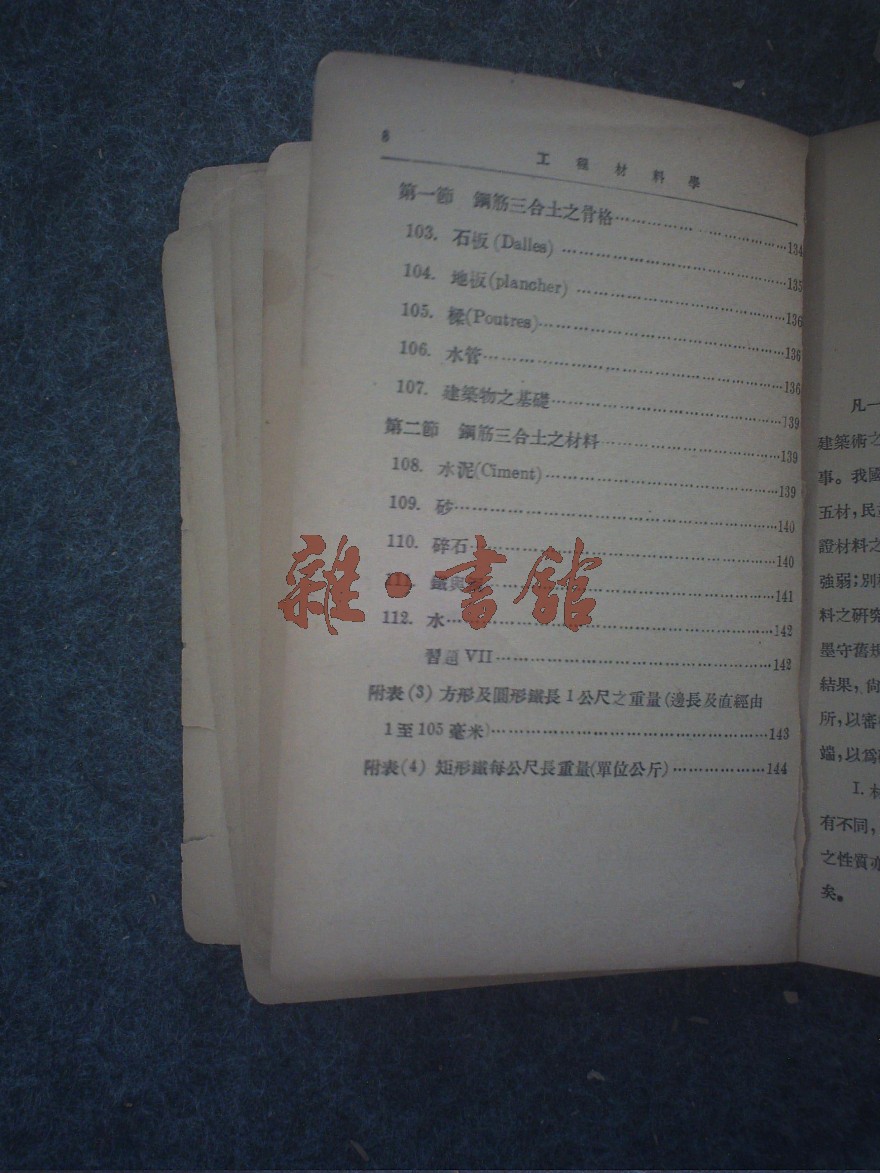 8
工程材料學
第一節 鋼筋三合土之骨格……………………134
103. 石板(Dalles) ……………………135
104. 地板(plancher) ……………………136
105. 樑(Poutres)……………………136
106. 水管……………………136
107. 建築物之基礎……………………139
第二節 鋼筋三合土之材料……………………139
108. 水泥(Ciment)……………………139
109. 砂……………………140
110. 碎石……………………140
111. 鐵與……………………141
112. 水……………………142
習題 VII……………………142
附表(3) 方形及圓形鐵長1公尺之重量(邊長及直經由
1至105毫米)……………………143
附表(4) 矩形鐵每公尺長重量(單位公斤)………………144
雜·書館
凡一
建築術之
事。我國
五材,民
證材料之
強弱;別
料之研究
墨守舊規
結果,尙
所,以審
端,以爲
I. 材
有不同,
之性質亦
矣。